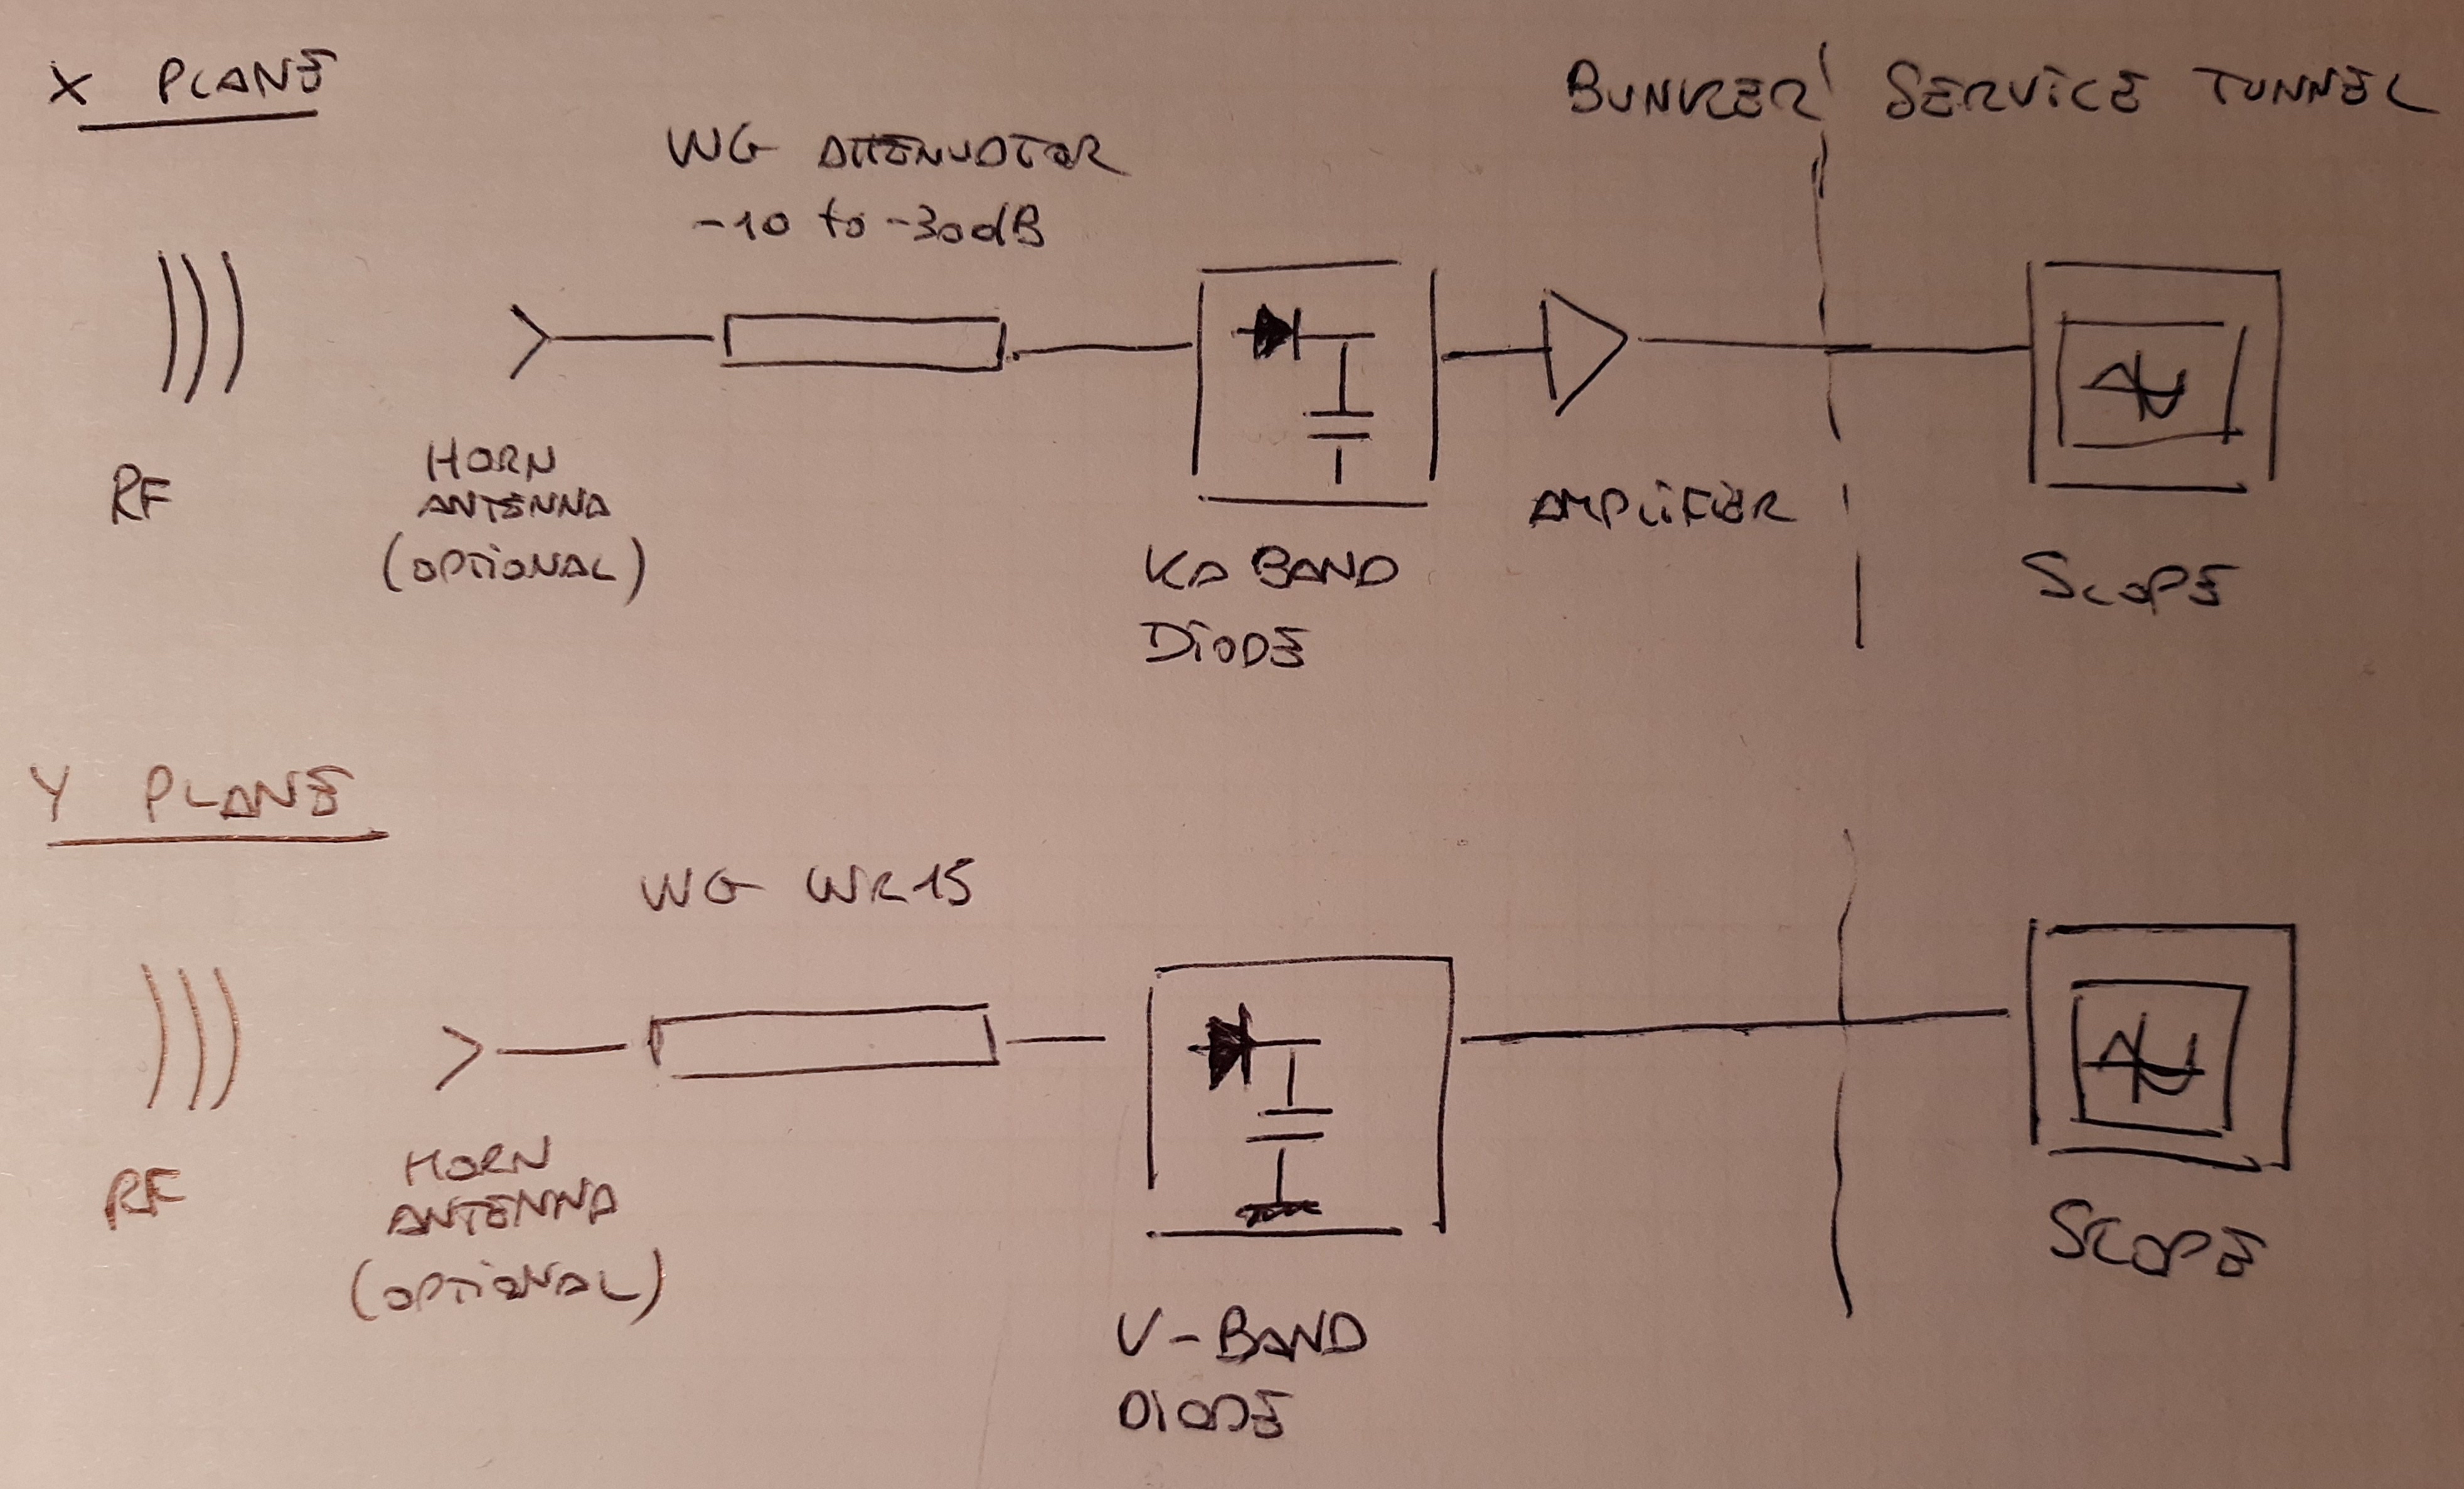 X PLANE
BUNKER SERVICE TUNNEL
WG ATTENUATOR
-10 to -30dB
RF
HORN
ANTENNA
(OPTIONAL)
KA BAND
DIODE
AMPLIFIER
SCOPE
Y PLANE
WG WR15
RF
HORN
ANTENNA
(OPTIONAL)
V-BAND
DIODE
SCOPE